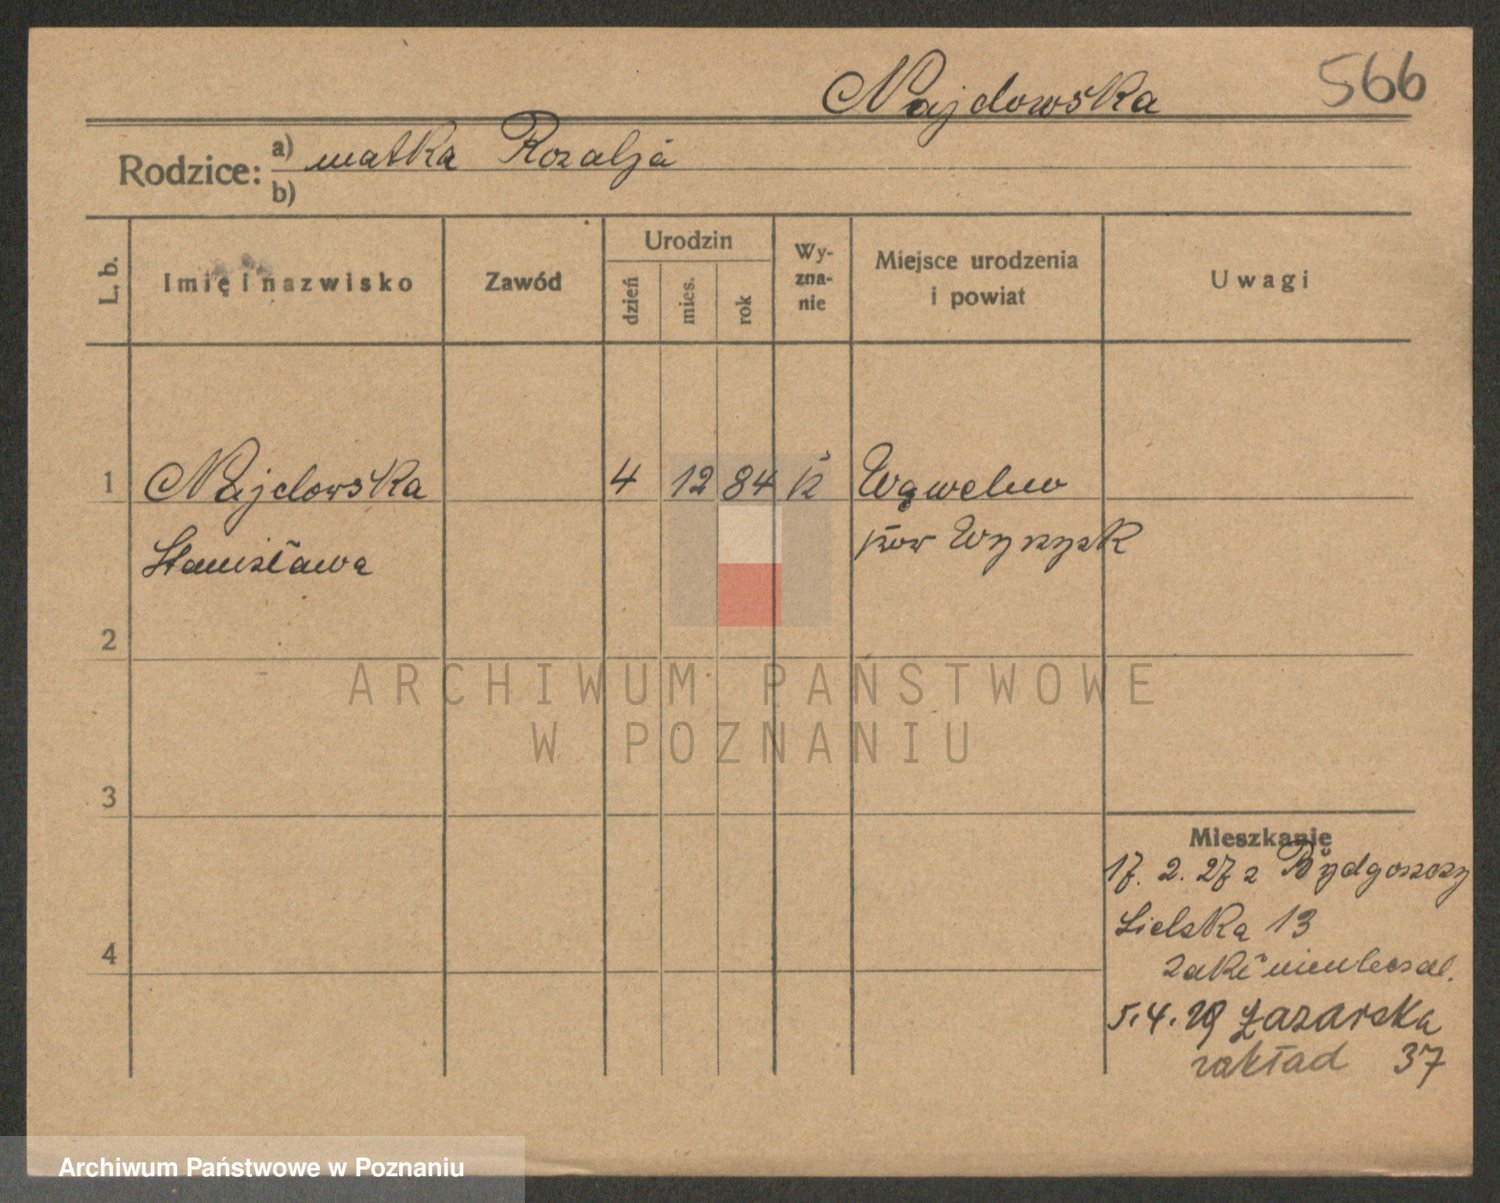 Najdowska 566
Rodzice: a) matka Rozalja
b)
L. b.
Imię i nazwisko
Zawód
Urodzin
dzień
mies.
rok
Wy-
zna-
nie
Miejsce urodzenia
i powiat
Uwagi
1 Najdowska 4 12 84 k Wąwelno
Stanisława pow Wyrzysk
2
ARCHIWUM PAŃSTWOWE
W POZNANIU
3
Mieszkanie
17. 2. 27 z Bydgoszczy
13
4
5.4.29 Łazarska
zakład 37
Archiwum Państwowe w Poznaniu